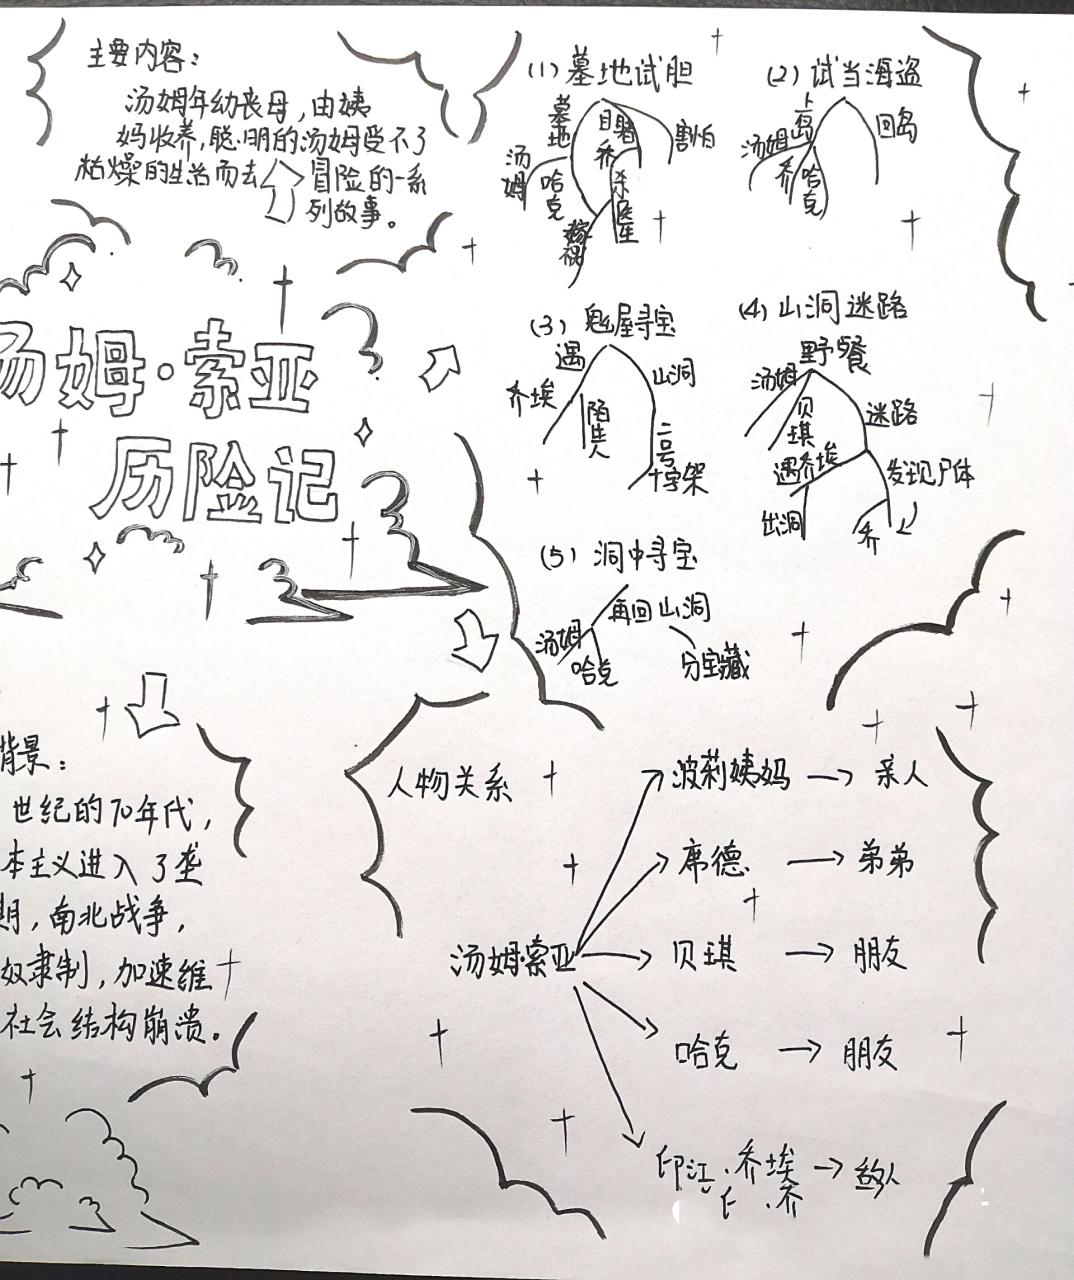 主要内容：
汤姆年幼丧母，由姨
妈收养，聪明的汤姆受不了
枯燥的生活而去 冒险的一系
列故事。
汤姆·索亚
历险记
背景：
世纪的70年代，
本主义进入了垄
期，南北战争，
奴隶制，加速维
社会结构崩溃。
(1) 墓地试胆
墓地
目睹
害怕
汤姆
哈克
乔
杀医生
嫁祸
(2) 试当海盗
上岛
回岛
汤姆
乔
哈克
(3) 鬼屋寻宝
遇
山洞
乔埃
陌生人
二号
十字架
(4) 山洞迷路
野餐
汤姆
贝琪
迷路
遇乔埃
发现尸体
出洞
乔
(5) 洞中寻宝
再回山洞
汤姆
哈克
分宝藏
人物关系
汤姆·索亚
波莉姨妈 → 亲人
席德 → 弟弟
贝琪 → 朋友
哈克 → 朋友
印江·乔埃 → 敌人